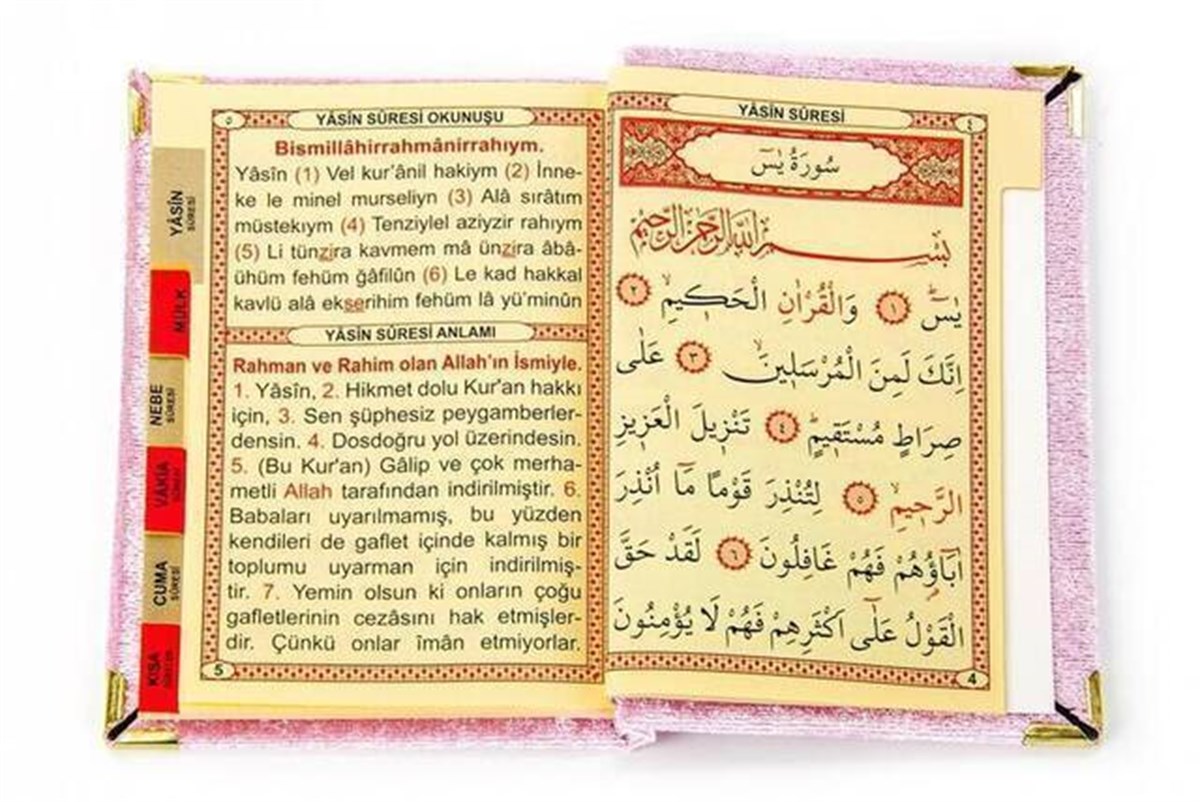 YÂSİN SÛRESİ
MÜLK
NEBE SÛRESİ
VAKIA
CUMA SÛRESİ
KISA
٥
YÂSÎN SÛRESİ OKUNUŞU
Bismillâhirrahmânirrahıym.
Yâsîn (1) Vel kur'ânil hakiym (2) İnne-
ke le minel murseliyn (3) Alâ sırâtım
müstekıym (4) Tenziylel aziyzir rahıym
(5) Li tünzira kavmem mâ ünzira âbâ-
ühüm fehüm ğâfilûn (6) Le kad hakkal
kavlü alâ ekserihim fehüm lâ yü'minûn
YÂSÎN SÛRESİ ANLAMI
Rahman ve Rahim olan Allah'ın İsmiyle.
1. Yâsîn, 2. Hikmet dolu Kur'an hakkı
için, 3. Sen şüphesiz peygamberler-
densin. 4. Dosdoğru yol üzerindesin.
5. (Bu Kur'an) Gâlip ve çok merha-
metli Allah tarafından indirilmiştir. 6.
Babaları uyarılmamış, bu yüzden
kendileri de gaflet içinde kalmış bir
toplumu uyarman için indirilmiş-
tir. 7. Yemin olsun ki onların çoğu
gafletlerinin cezâsını hak etmişler-
dir. Çünkü onlar îmân etmiyorlar.
5
YÂSÎN SÛRESİ
٤
سُورَةُ يٰسٓ
بِسْمِ اللّٰهِ الرَّحْمٰنِ الرَّحِيمِ
يٰسٓ ۚ ١ وَالْقُرْاٰنِ الْحَكِيمِۙ ٢
اِنَّكَ لَمِنَ الْمُرْسَلِينَۙ ٣ عَلٰى
صِرَاطٍ مُسْتَقِيمٍۜ ٤ تَنْزِيلَ الْعَزِيزِ
الرَّحِيمِۙ ٥ لِتُنْذِرَ قَوْمًا مَٓا اُنْذِرَ
اٰبَٓاؤُ۬هُمْ فَهُمْ غَافِلُونَ ٦ لَقَدْ حَقَّ
الْقَوْلُ عَلٰٓى اَكْثَرِهِمْ فَهُمْ لَا يُؤْمِنُونَ
4